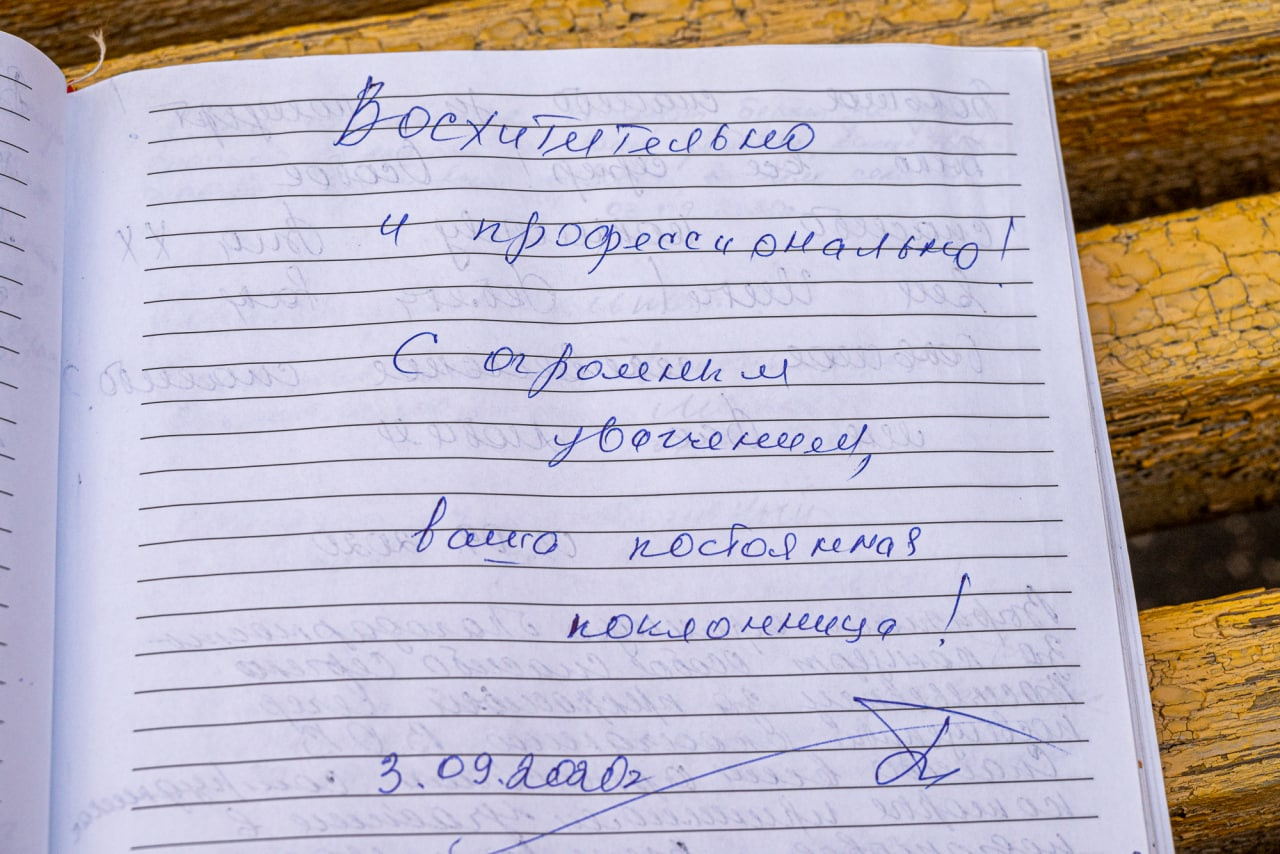 Восхитительно
и профессионально!
С огромным
уважением,
ваша постоянная
поклонница!
3.09.2020г